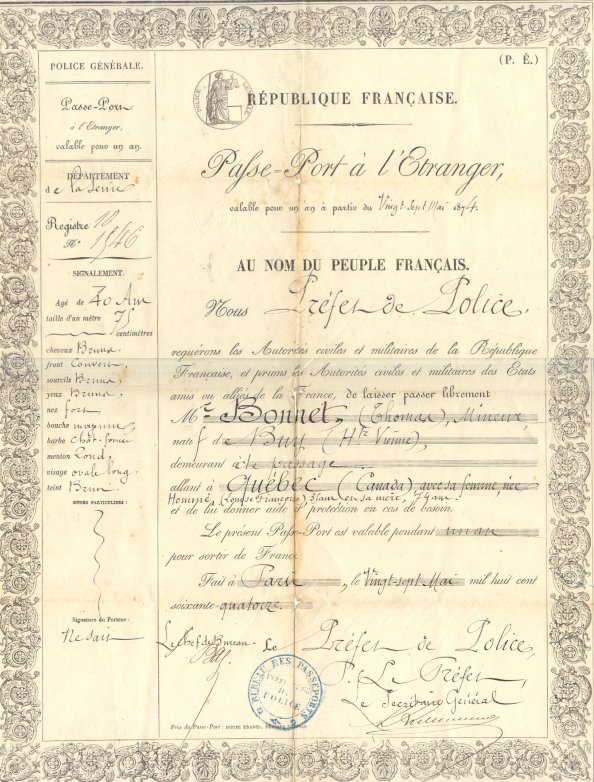 (P. É.)
POLICE GÉNÉRALE.
Passe-Port
à l'Etranger,
valable pour un an.
DÉPARTEMENT
de La Seine
Registre 10
No. 1546
SIGNALEMENT.
Agé de 40 Ans
taille d'un mètre 75
centimètres
cheveux Bruns
front Couvert
sourcils Bruns
yeux Bruns
nez fort
bouche moyenne
barbe chât. foncé
menton Rond
visage ovale long
teint Brun
SIGNES PARTICULIERS :
Signature du Porteur :
Ne sait
RÉPUBLIQUE FRANÇAISE.
Passe-Port à l'Etranger,
valable pour un an à partir du Vingt-sept Mai 1874.
AU NOM DU PEUPLE FRANÇAIS.
Nous Préfet de Police,
requérons les Autorités civiles et militaires de la République
Française, et prions les Autorités civiles et militaires des Etats
amis ou alliés de la France, de laisser passer librement
Mr. Bonnet, (Thomas), Mineur,
natif de (Hte Vienne),
demeurant de passage
allant à Québec (Canada) avec sa femme, née
(Louise Françoise) 31 ans et sa mère, 74 ans.
et de lui donner aide et protection en cas de besoin.
Le présent Passe-Port est valable pendant un an
pour sortir de France.
Fait à Paris, le Vingt-sept Mai mil huit cent
soixante-quatorze
Le Chef de Bureau. Le Préfet de Police,
P. Le Préfet,
Le Secrétaire Général
BUREAU DES PASSEPORTS
POLICE
Prix du Passe-Port : DOUZE FRANCS,